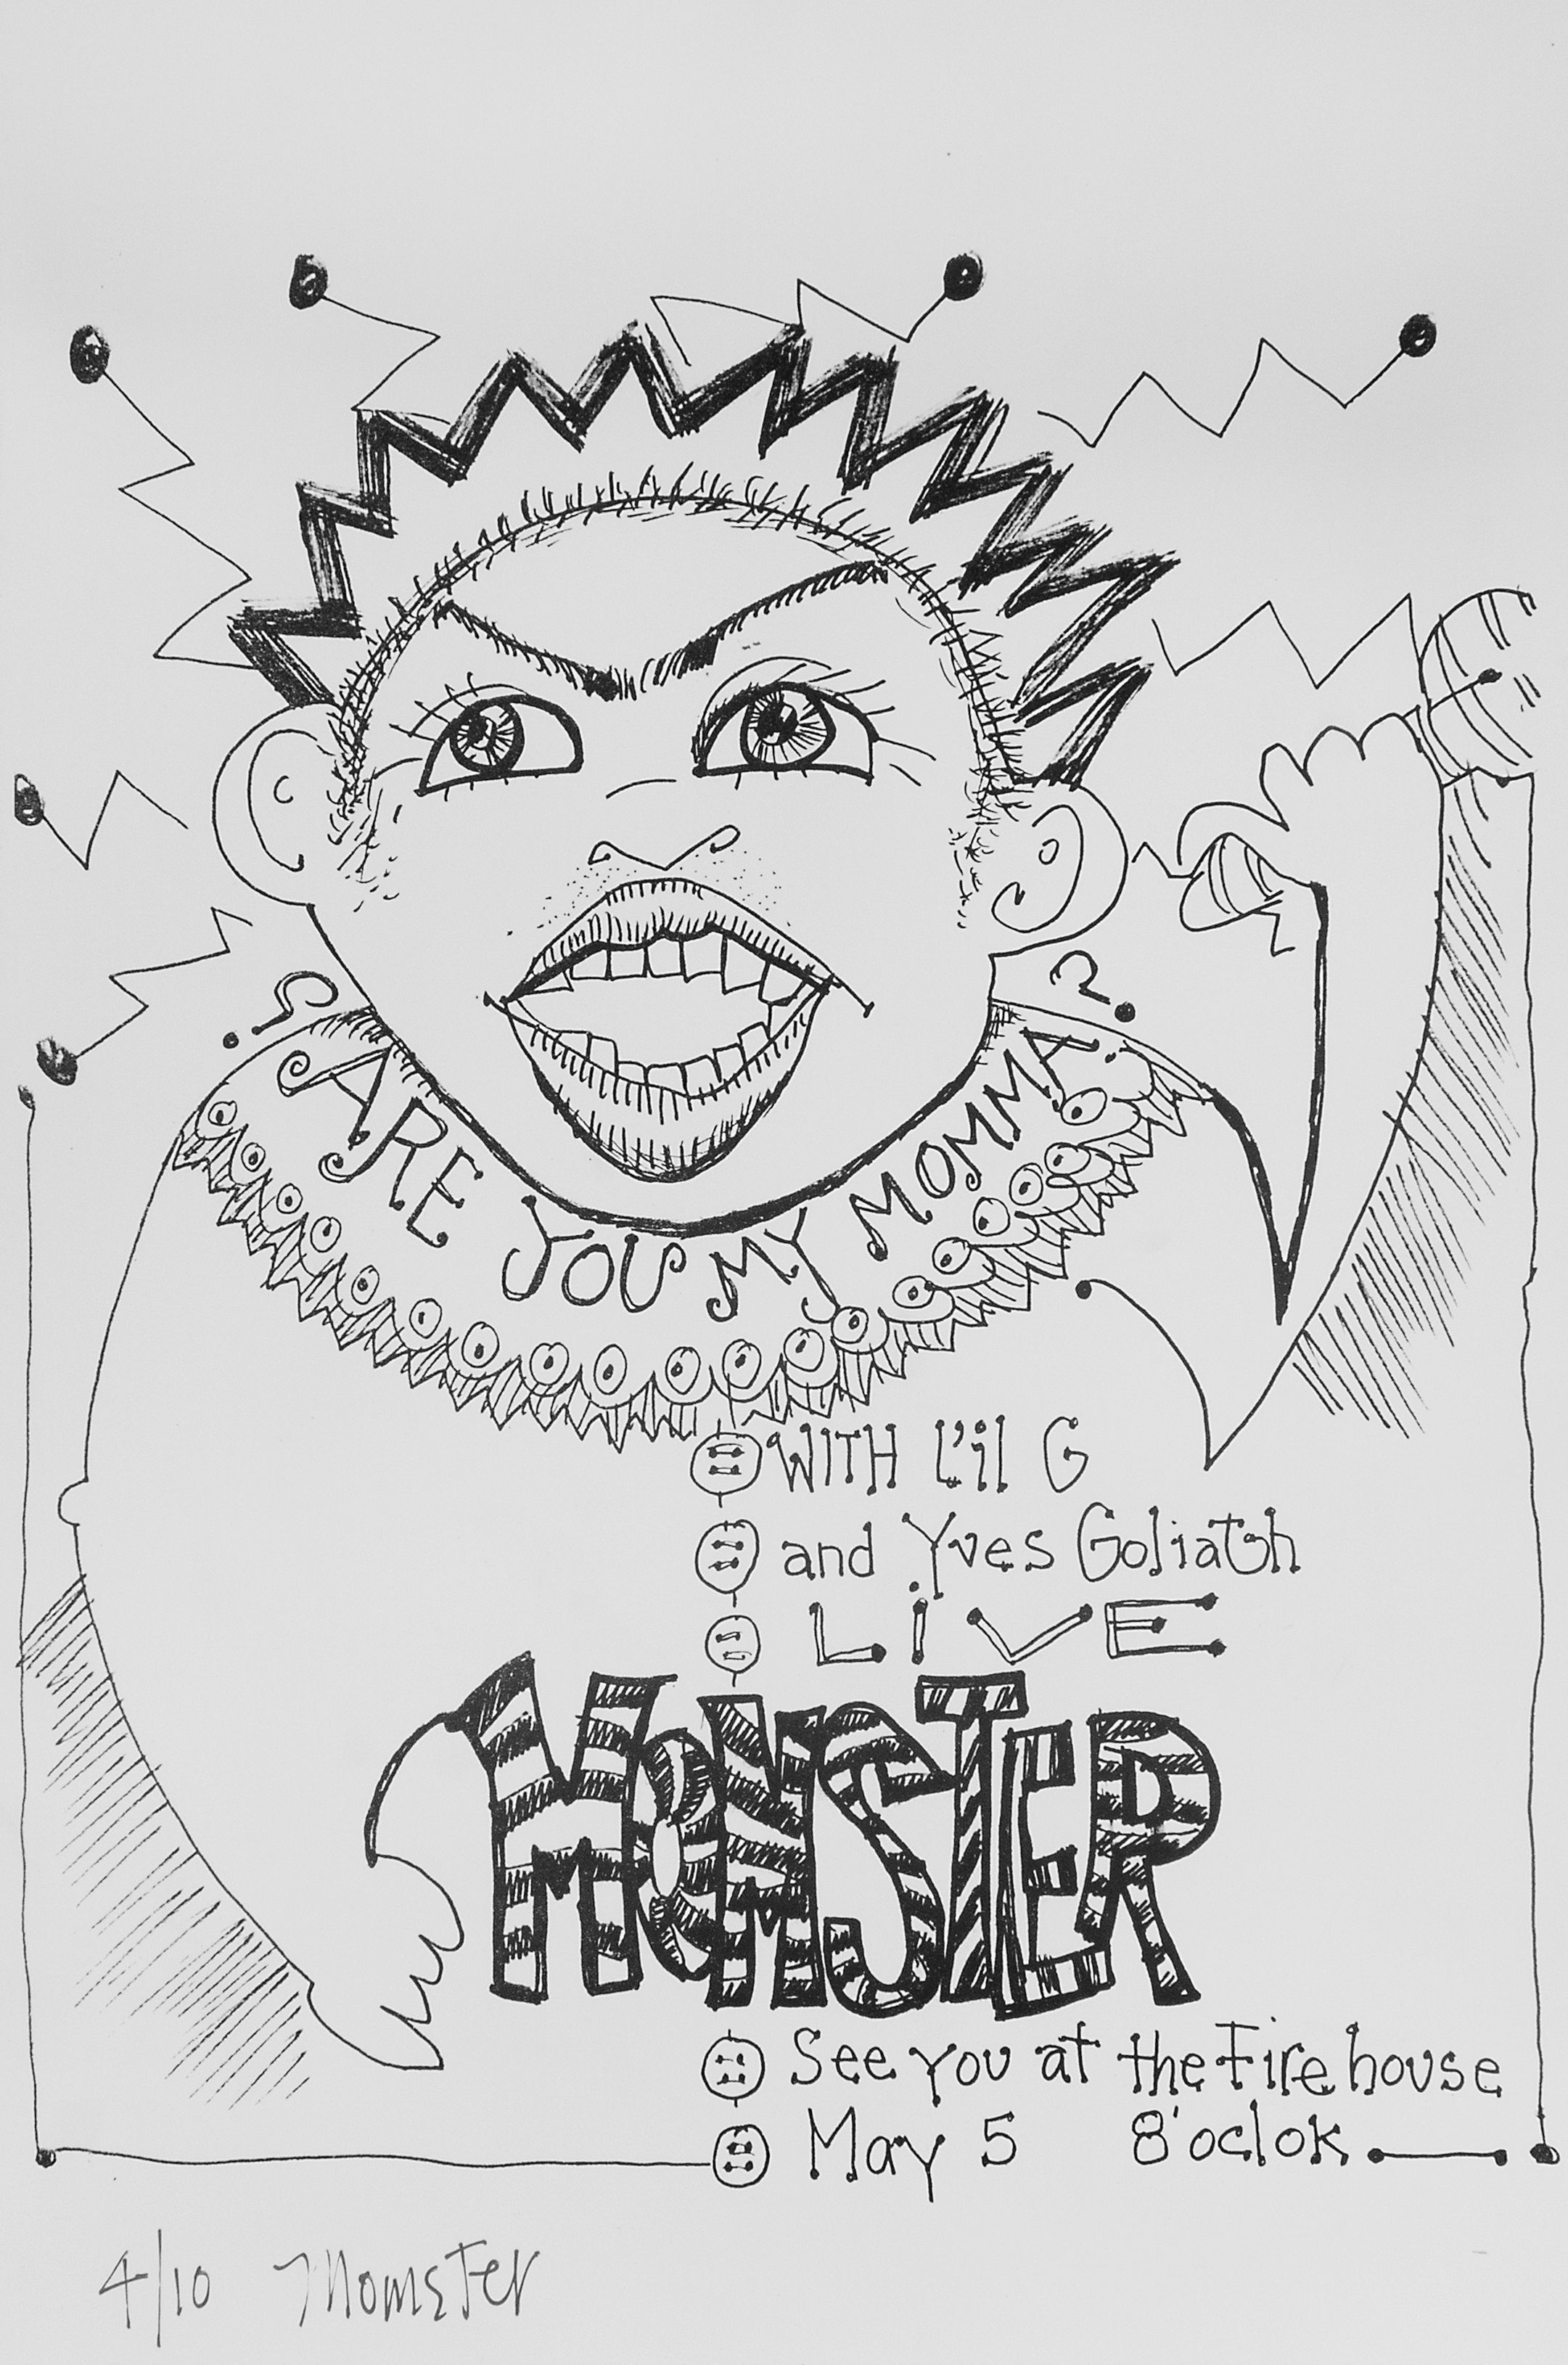 ? ARE YOU MY MOMMA ?
WITH L'il G
and Yves Goliath
LiVE
MOMSTER
See you at the Firehouse
May 5 8'oclok
4/10 Momster